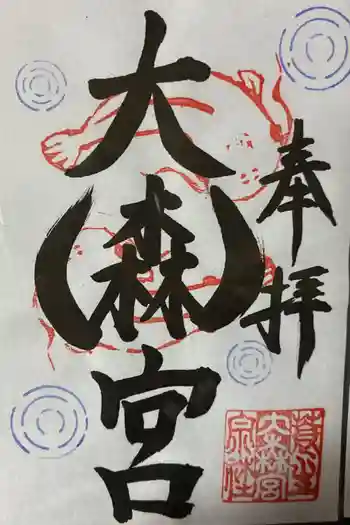 奉拝
大(森)宮
大森宮